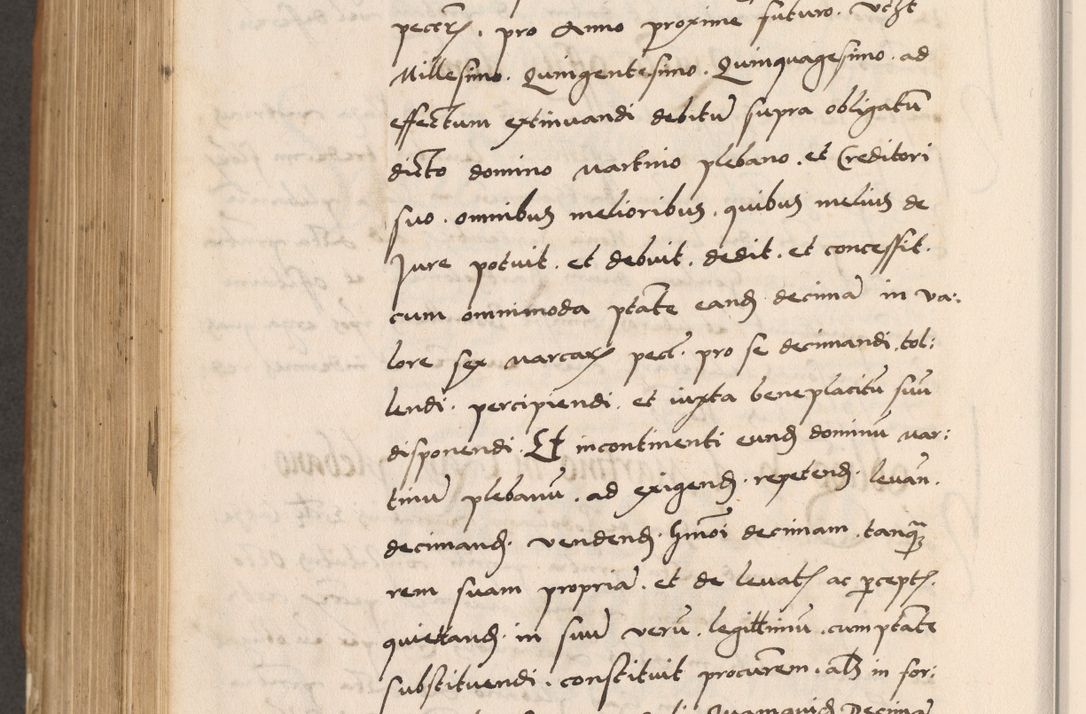 pro Anno proxime futuro. vtzt
Millesimo. Quingentesimo. Quinquagesimo. ad
effectum extinuandi debitũ supra obligatũ
dicto domino Martino plebano. et Creditori
suo. omnibus melioribus. quibus melius de
Jure potuit. et debuit. dedit. et concessit.
cum omnimoda ptãte eand. decimã in va:
lore sex Marcar. pecc. pro se decimandi. tol:
lendi. percipiendi. et iuxta beneplacitũ suũ
disponendi. Et incontinenti eund. dominũ Mar:
tinũ plebanũ. ad exigend. repetend. levan.
decimand. vendend. hmõi decimam. tanq̃
rem suam propriã. et de levat. ac percept.
quiettand. in suũ verũ. legittimũ. cum ptãte
substituendi. constituit procurem. als in for:
Decimã